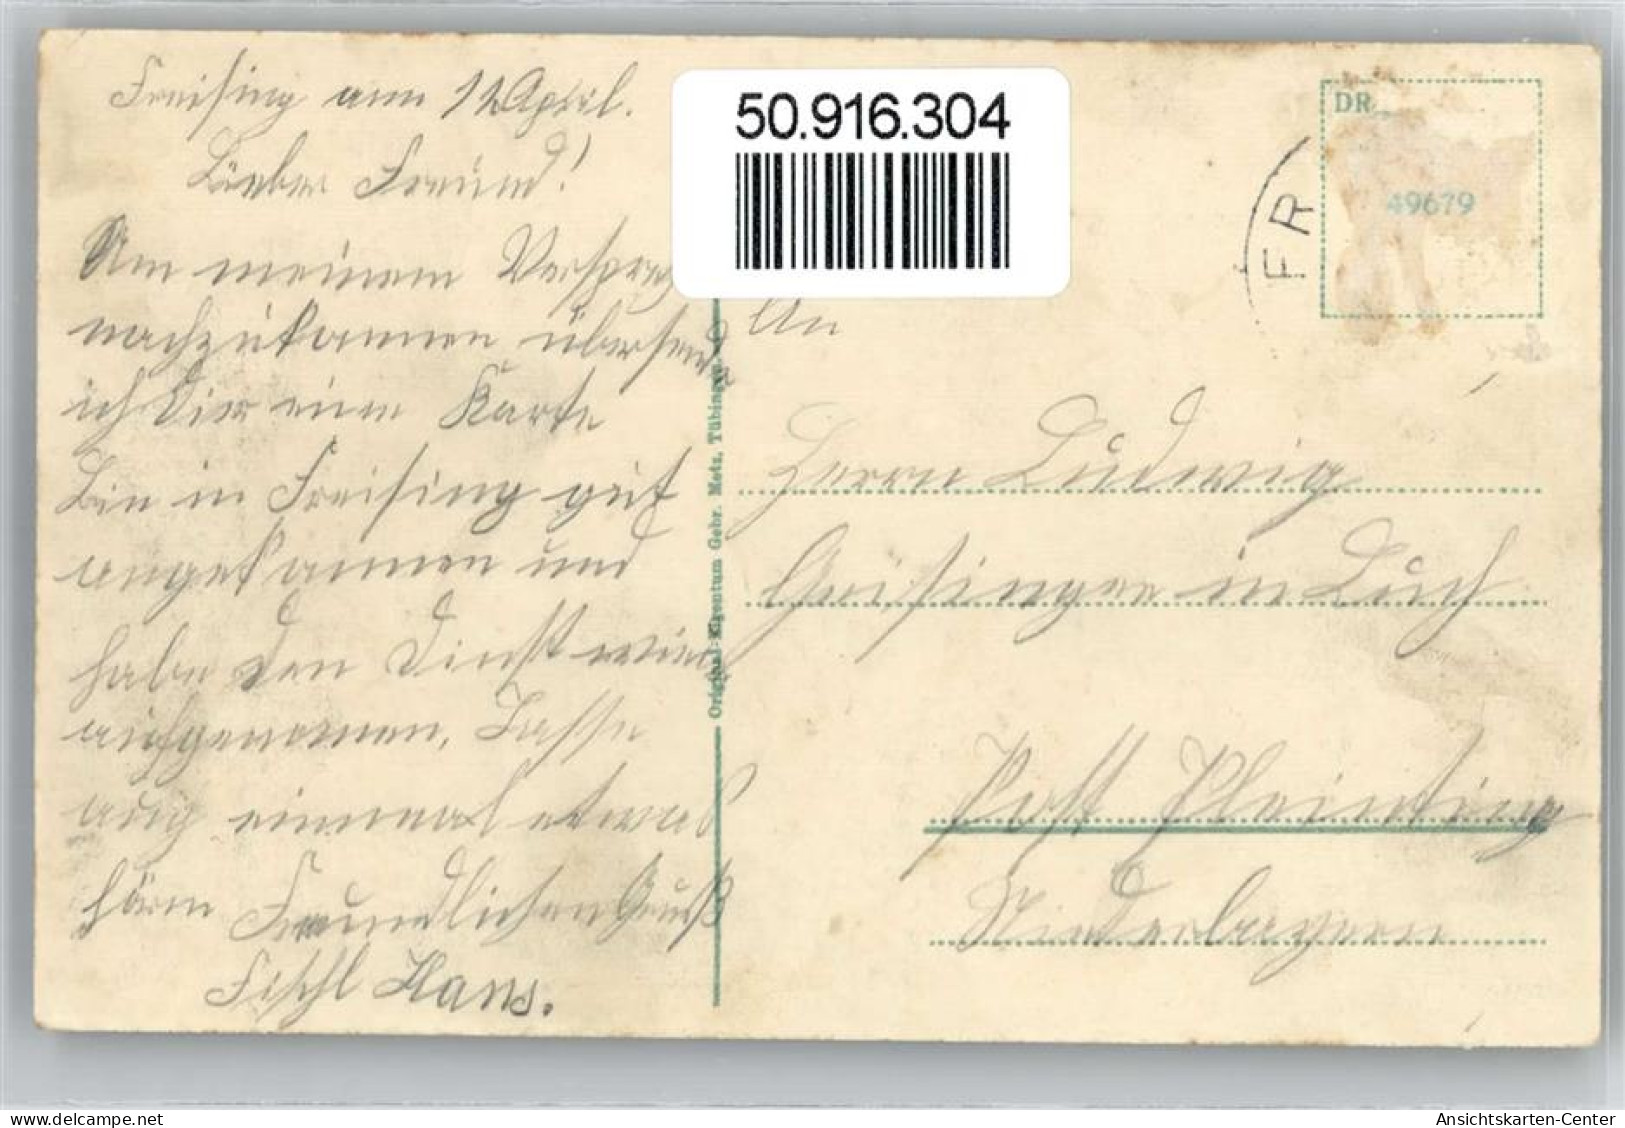 Freising am 12 April.
Lieber Freund!
Um meinem Versprech
nachzukommen übersende
ich Dir eine Karte
Bin in Freising gut
angekommen und
habe den Dienst wieder
aufgenommen. Lasse
auch einmal etwas
hören Freundlichen Gruß
Fischl Hans.
50.916.304
Original-Eigentum Gebr. Metz, Tübingen.
FR
DR
49679
An
Herrn Ludwig
Geisinger in Buch
Post Pleinting
Niederbayern
delcampe.net
Ansichtskarten-Center